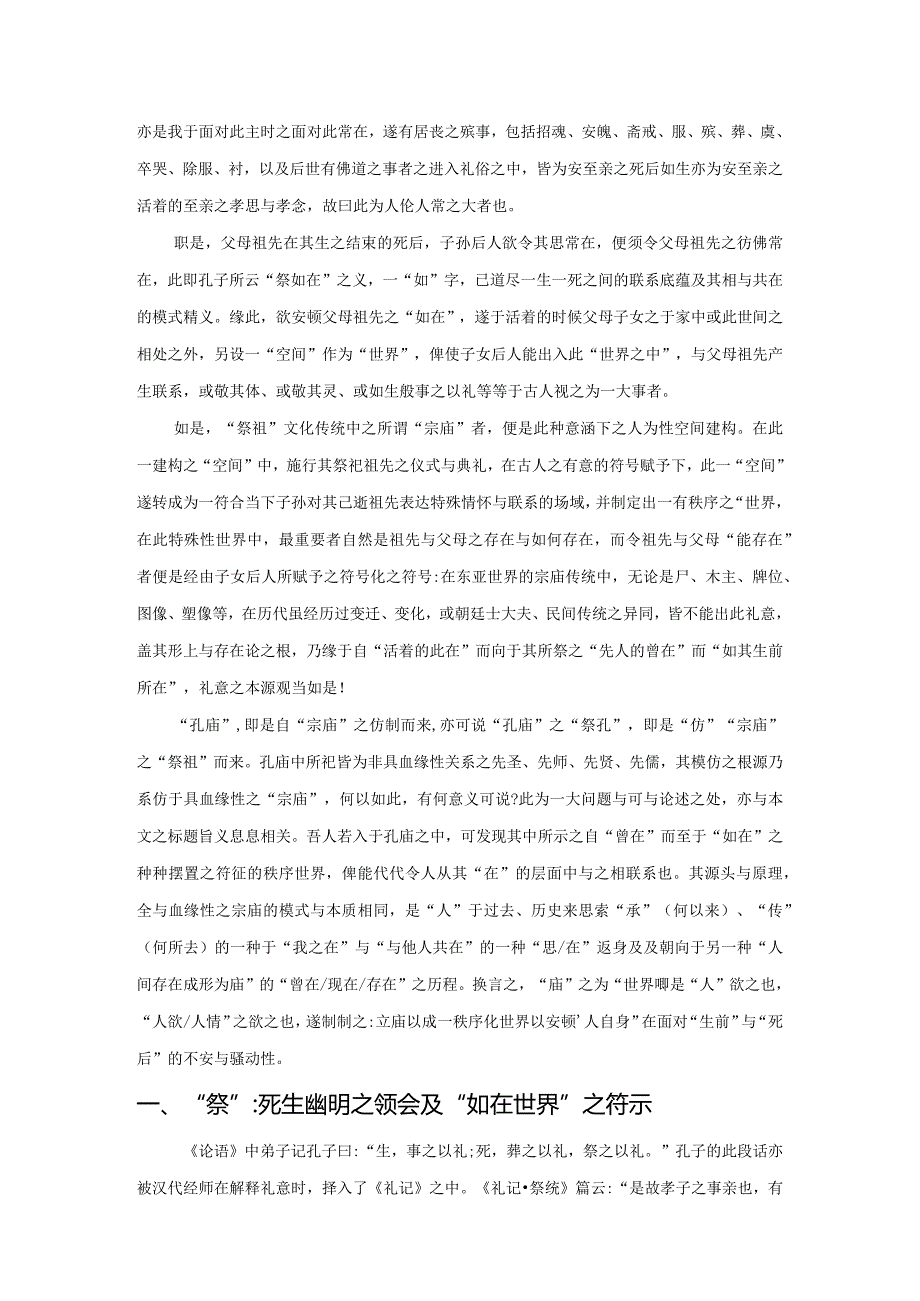 亦是我于面对此主时之面对此常在，遂有居丧之殡事，包括招魂、安魄、斋戒、服、殡、葬、虞、
卒哭、除服、衬，以及后世有佛道之事者之进入礼俗之中，皆为安至亲之死后如生亦为安至亲之
活着的至亲之孝思与孝念，故曰此为人伦人常之大者也。
职是，父母祖先在其生之结束的死后，子孙后人欲令其思常在，便须令父母祖先之彷佛常
在，此即孔子所云“祭如在”之义，一“如”字，已道尽一生一死之间的联系底蕴及其相与共在
的模式精义。缘此，欲安顿父母祖先之“如在”，遂于活着的时候父母子女之于家中或此世间之
相处之外，另设一“空间”作为“世界”，俾使子女后人能出入此“世界之中”，与父母祖先产
生联系，或敬其体、或敬其灵、或如生般事之以礼等等于古人视之为一大事者。
如是，“祭祖”文化传统中之所谓“宗庙”者，便是此种意涵下之人为性空间建构。在此
一建构之“空间”中，施行其祭祀祖先之仪式与典礼，在古人之有意的符号赋予下，此一“空间”
遂转成为一符合当下子孙对其己逝祖先表达特殊情怀与联系的场域，并制定出一有秩序之“世界，
在此特殊性世界中，最重要者自然是祖先与父母之存在与如何存在，而令祖先与父母“能存在”
者便是经由子女后人所赋予之符号化之符号:在东亚世界的宗庙传统中，无论是尸、木主、牌位、
图像、塑像等，在历代虽经历过变迁、变化，或朝廷士大夫、民间传统之异同，皆不能出此礼意，
盖其形上与存在论之根，乃缘于自“活着的此在”而向于其所祭之“先人的曾在”而“如其生前
所在”，礼意之本源观当如是！
“孔庙”,即是自“宗庙”之仿制而来,亦可说“孔庙”之“祭孔”，即是“仿”“宗庙”
之“祭祖”而来。孔庙中所祀皆为非具血缘性关系之先圣、先师、先贤、先儒，其模仿之根源乃
系仿于具血缘性之“宗庙”，何以如此，有何意义可说?此为一大问题与可与论述之处，亦与本
文之标题旨义息息相关。吾人若入于孔庙之中，可发现其中所示之自“曾在”而至于“如在”之
种种摆置之符征的秩序世界，俾能代代令人从其“在”的层面中与之相联系也。其源头与原理，
全与血缘性之宗庙的模式与本质相同，是“人”于过去、历史来思索“承”（何以来）、“传”
（何所去）的一种于“我之在”与“与他人共在”的一种“思/在”返身及及朝向于另一种“人
间存在成形为庙”的“曾在/现在/存在”之历程。换言之，“庙”之为“世界唧是“人”欲之也，
“人欲/人情”之欲之也，遂制制之:立庙以成一秩序化世界以安顿'人自身”在面对“生前”与“死
后”的不安与骚动性。
一、“祭”:死生幽明之领会及“如在世界”之符示
《论语》中弟子记孔子曰:“生，事之以礼;死，葬之以礼，祭之以礼。”孔子的此段话亦
被汉代经师在解释礼意时，择入了《礼记》之中。《礼记•祭统》篇云:“是故孝子之事亲也，有